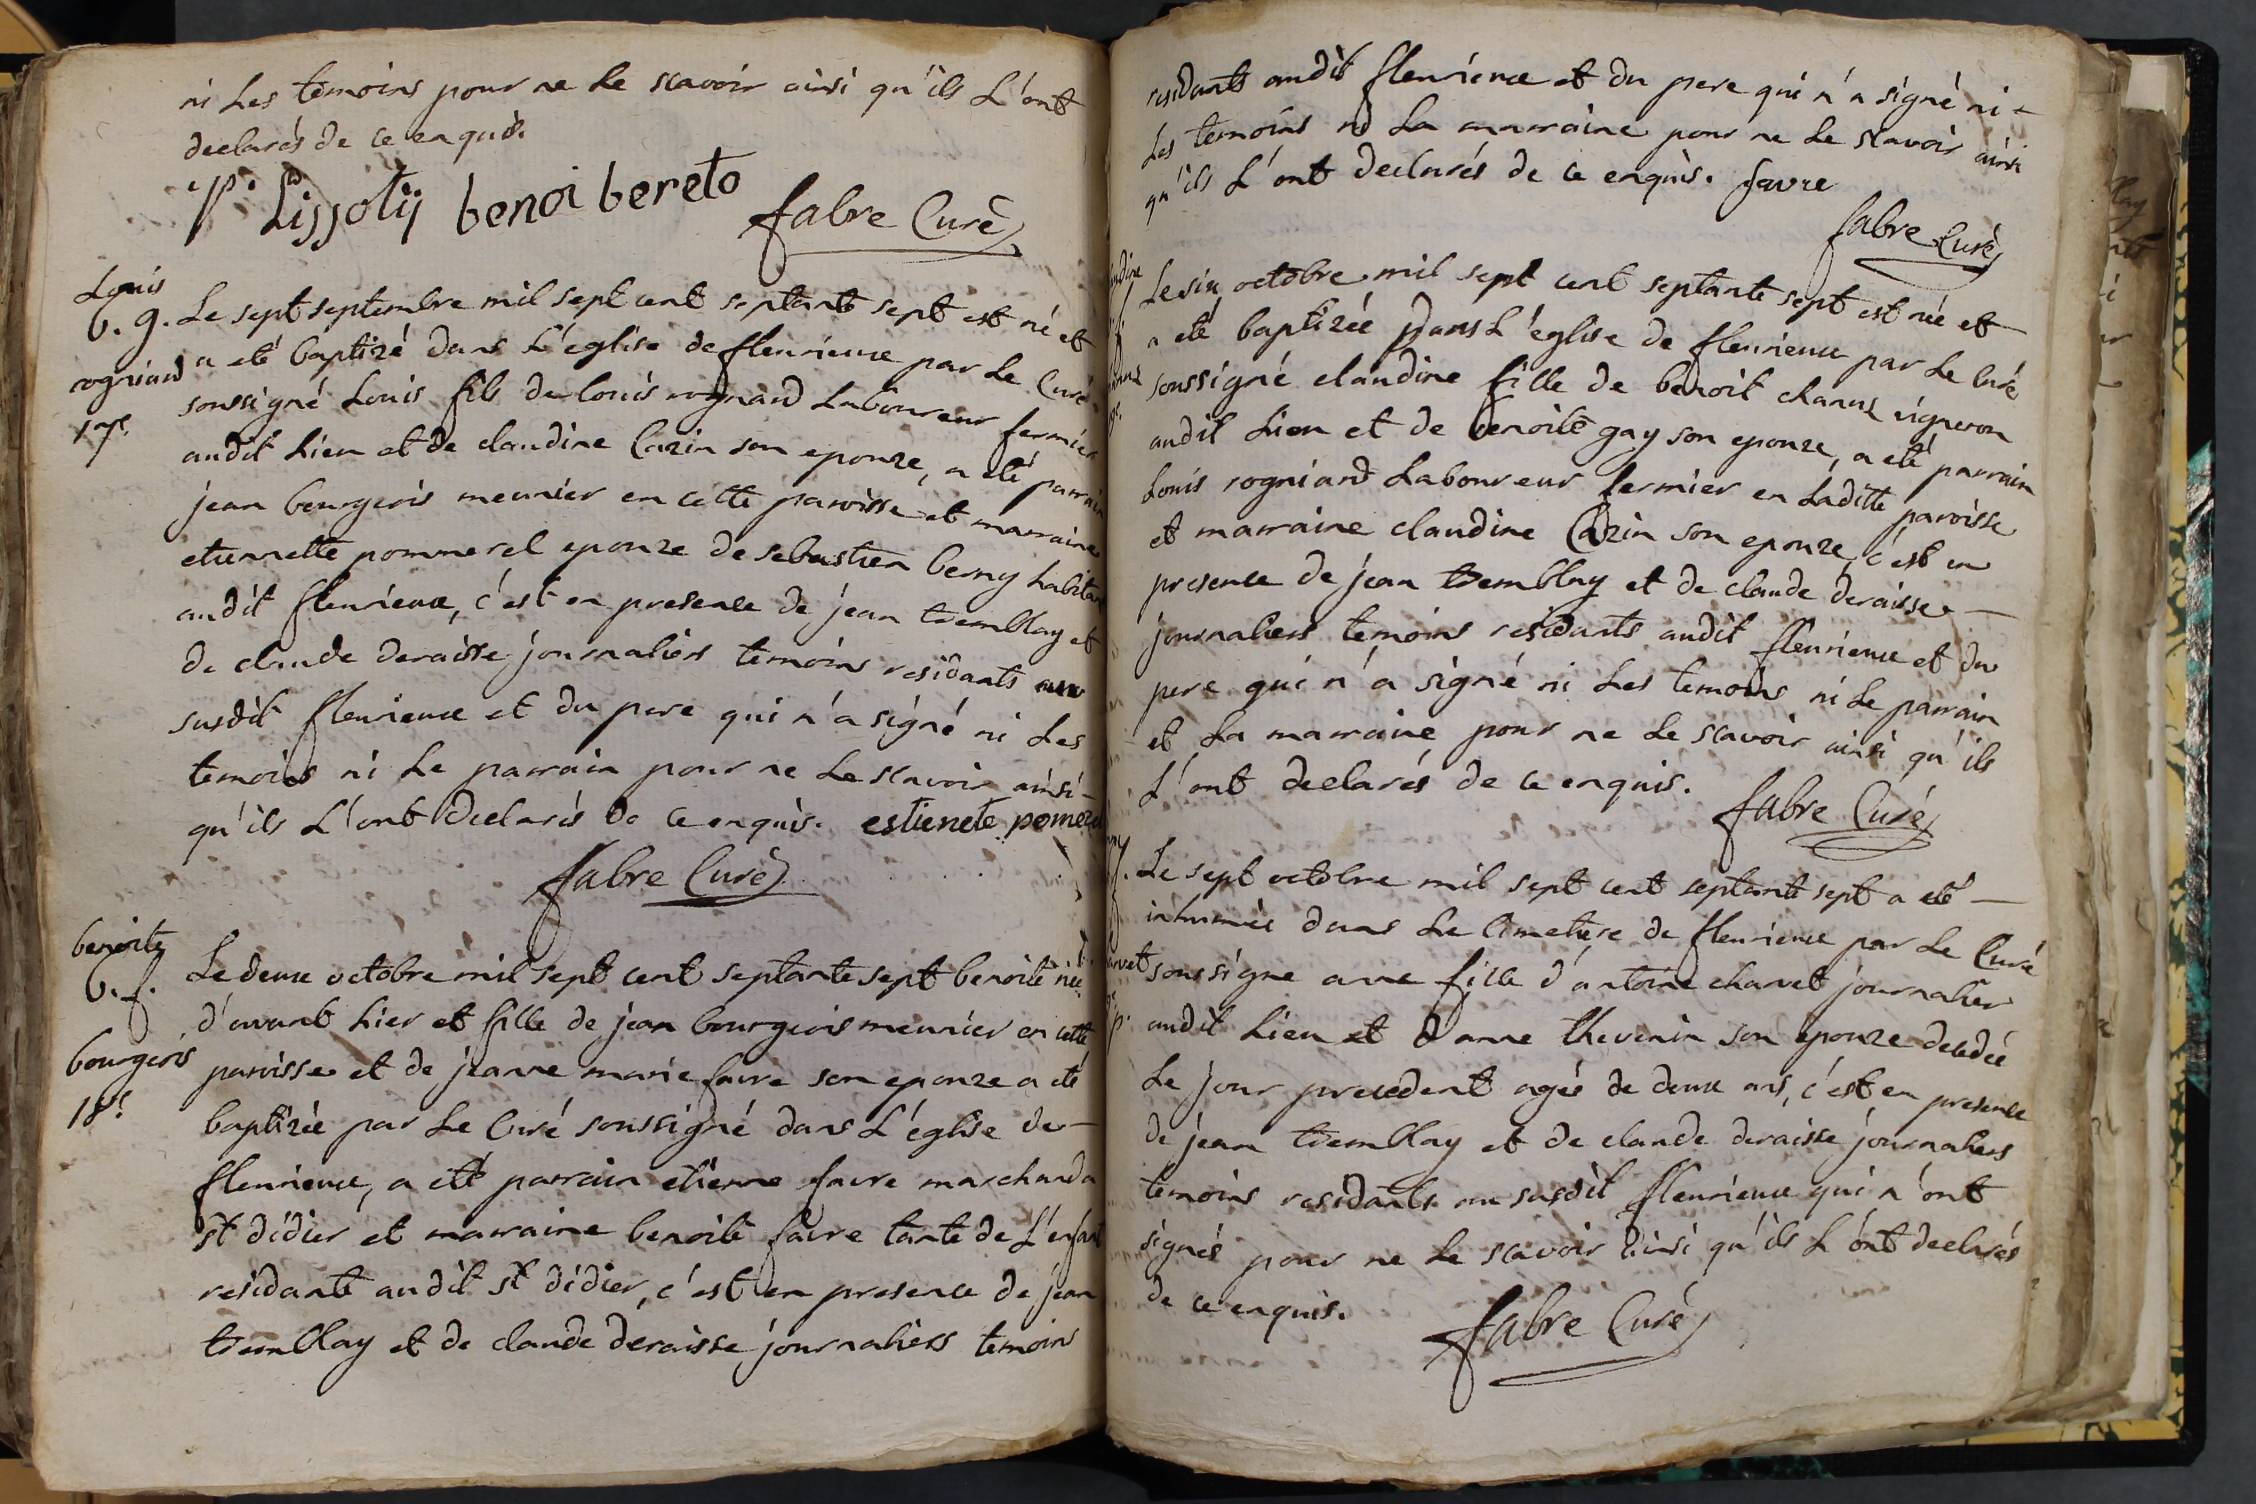 ni Les temoins pour ne Le scavoir ainsi qu'ils L'ont
declarés de ce enquis.
P. Lissotij benoi bereto fabre Curé
Louis
b. g.
rogniard
17e.
Le sept septembre mil sept cent septante sept est né et
a eté baptizé dans L'église de fleurieux par Le Curé
soussigné Louis fils de Louis rogniard Laboureur fermier
audit Lieu et de claudine Cazin son epouze, a eté parrain
jean bourgeois meunier en cette paroisse et marraine
etiennette pommerel epouze de sebastien berny habitant
audit fleurieux, c'est en presence de jean tremblay et
de claude deraisse journaliers temoins residants au
susdit fleurieux et du pere qui n'a signé ni Les
temoins ni Le parrain pour ne Le scavoir ainsi
qu'ils L'ont declarés de ce enquis. estienete pomerel
fabre Curé
benoite
b. f.
bourgeois
18e.
Le deux octobre mil sept cent septante sept benoite née
d'avant hier et fille de jean bourgeois meunier en cette
paroisse et de jeanne marie favre son epouze a eté
baptizée par Le Curé soussigné dans L'église de
fleurieux, a eté parrain etienne favre marchand a
st didier et marraine benoite favre tante de L'enfant
residante audit st didier, c'est en presence de jean
tremblay et de claude deraisse journaliers temoins
residants audit fleurieux et du pere qui n'a signé ni
Les temoins ni La marraine pour ne Le scavoir ainsi
qu'ils L'ont declarés de ce enquis. favre
fabre Curé
Le six octobre mil sept cent septante sept est née et
a eté baptizée dans L'église de fleurieux par Le Curé
soussigné claudine fille de benoit chanus vigneron
audit Lieu et de benoite gay son epouze, a eté parrain
Louis rogniard Laboureur fermier en Laditte paroisse
et marraine claudine Cazin son epouze, c'est en
presence de jean tremblay et de claude deraisse
journaliers temoins residants audit fleurieux et du
pere qui n'a signé ni Les temoins ni Le parrain
et La marraine pour ne Le scavoir ainsi qu'ils
L'ont declarés de ce enquis.
fabre Curé
Le sept octobre mil sept cent septante sept a eté
inhumée dans Le Cimetiere de fleurieux par Le Curé
soussigné anne fille d'antoine charvet journalier
audit Lieu et d'anne thevenin son epouze decedée
Le jour precedent agée de deux ans, c'est en presence
de jean tremblay et de claude deraisse journaliers
temoins residants au susdit fleurieux qui n'ont
signés pour ne Le scavoir ainsi qu'ils L'ont declarés
de ce enquis.
fabre Curé